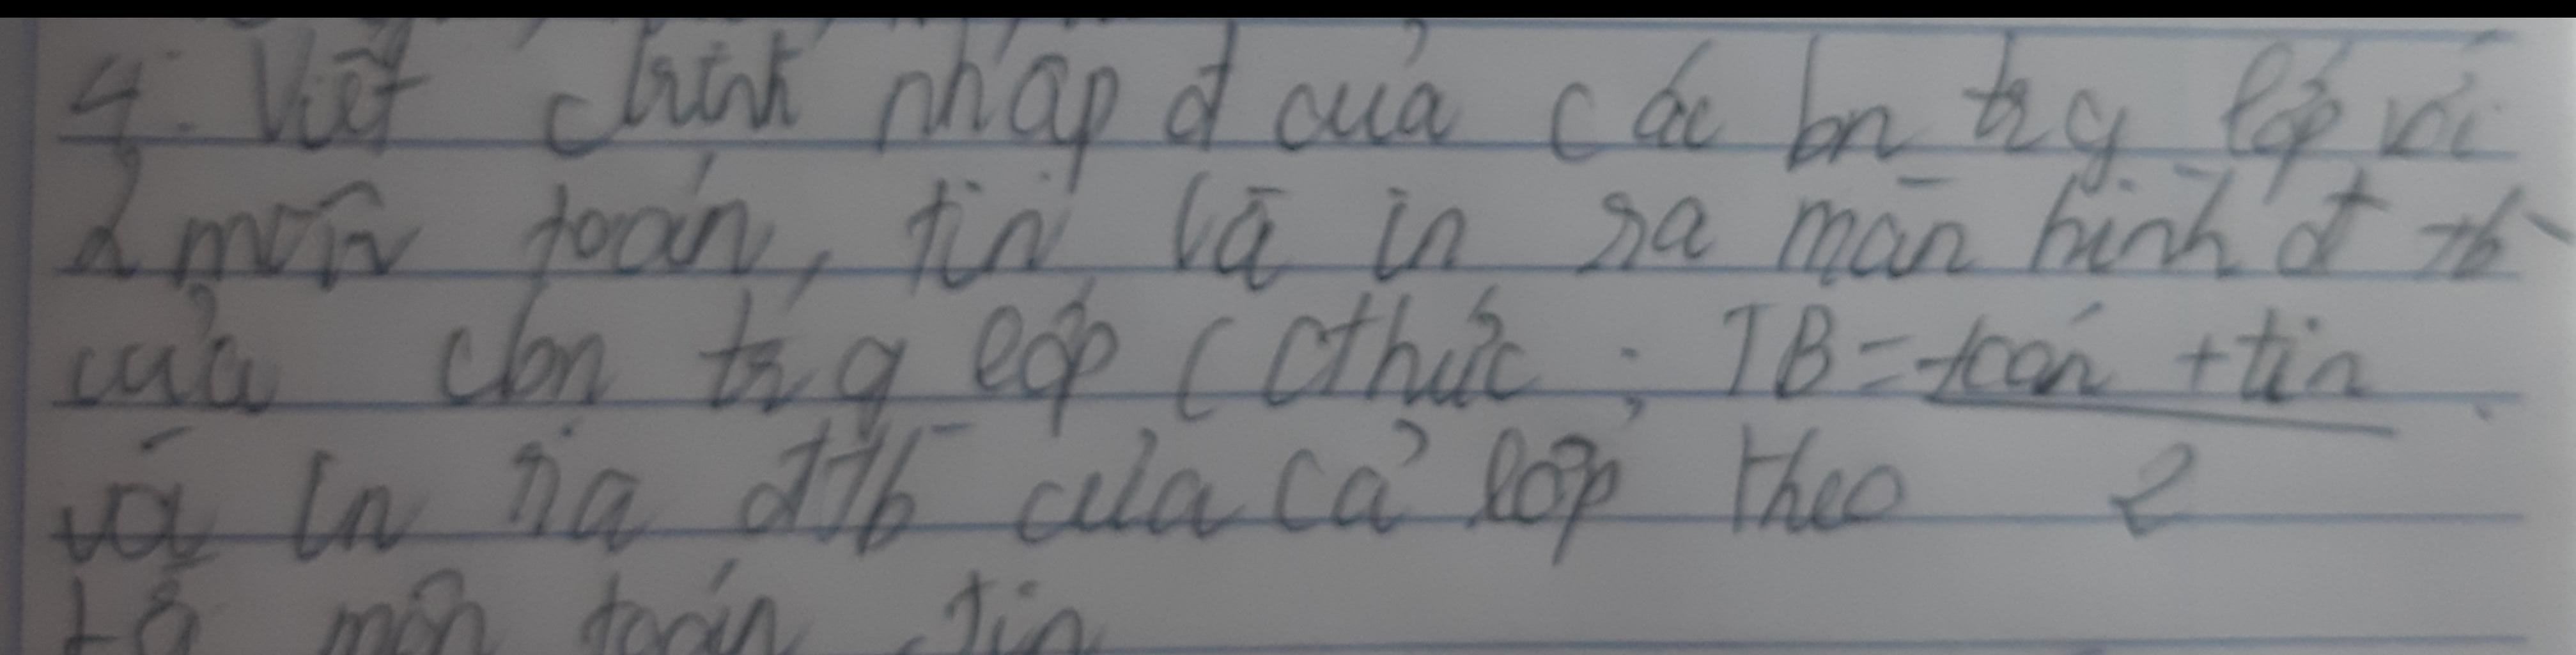 4. Viết ctrình nhập đ của các bn trg lớp với
2 môn toán, tin và in ra màn hình đ tb
của cbn trg lớp (cthức: TB = toán + tin
và in ra đtb của cả lớp theo 2
môn toán, tin